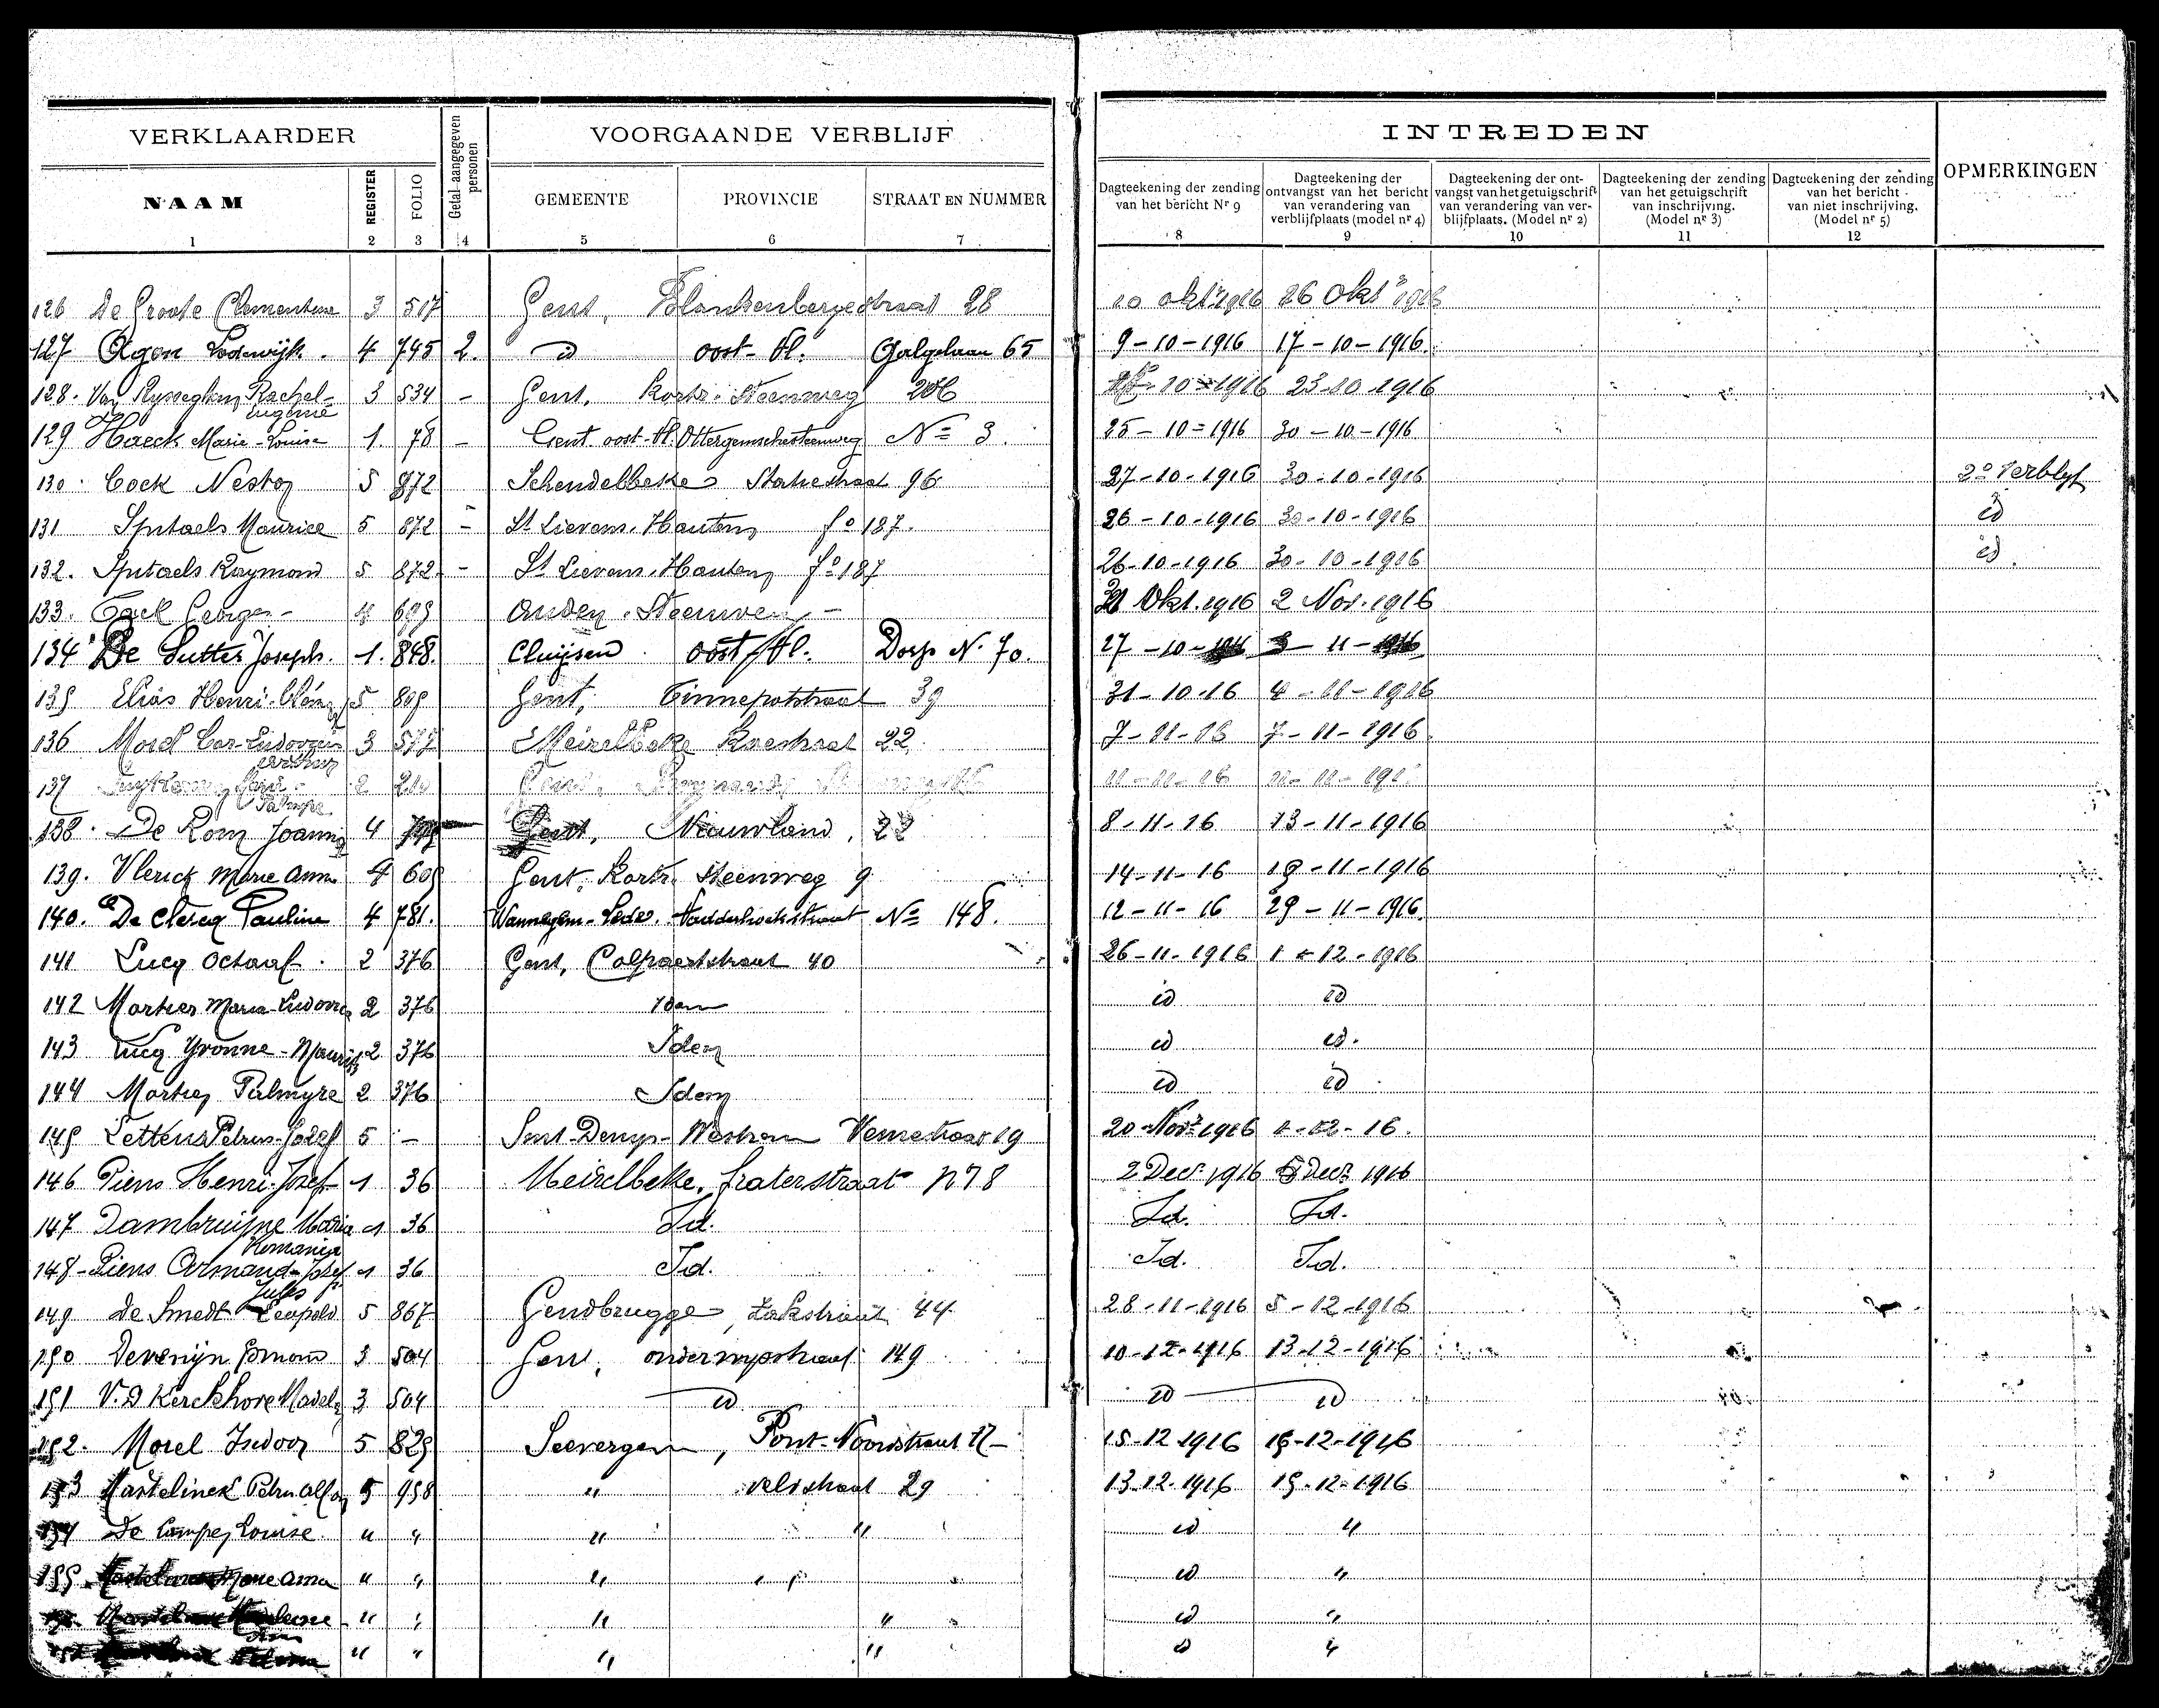 VERKLAARDER
Getal aangegeven personen
VOORGAANDE VERBLIJF
INTREDEN
OPMERKINGEN
NAAM
REGISTER
FOLIO
GEMEENTE
PROVINCIE
STRAAT EN NUMMER
Dagteekening der zending van het bericht Nr 9
Dagteekening der ontvangst van het bericht van verandering van verblijfplaats (model nr 4)
Dagteekening der ontvangst van het getuigschrift van verandering van verblijfplaats. (Model nr 2)
Dagteekening der zending van het getuigschrift van inschrijving. (Model nr 3)
Dagteekening der zending van het bericht van niet inschrijving. (Model nr 5)
1 2 3 4 5 6 7 8 9 10 11 12
126 De Groote Clementine 3 517 Gent, Blankenbergestraat 28 10 okt. 1916 26 Okt. 1916
127 Agon Lodewijk. 4 745 2. id oost-Vl. Galgelaan 65 9-10-1916 17-10-1916.
128. Van Rysseghem Rachel- Eugenie 3 534 - Gent, Kortr. Steenweg 206 10-1916 23-10-1916
129 Haeck Marie-Louise 1. 78 - Gent. oost-Vl. Ottergemschesteenweg No 3. 25-10-1916 30-10-1916
130. Cock Nestor 5 872 Schendelbeke Statiestraat 96 27-10-1916 30-10-1916 2e Verblyf
131 Sputaels Maurice 5 872 - St Lievens-Hautem fo 187. 26-10-1916 30-10-1916 id
132. Sputaels Raymond 5 872 - St Lievens-Hautem fo 187 26-10-1916 30-10-1916 id.
133. Cock Georges 4 699 Auden. Steenweg - 31 Okt. 1916 2 Nov. 1916
134 De Sutter Joseph. 1. 848. Cluijsen oost-Vl. Dorp N. 70. 27-10-1916 3-11-1916
135 Elias Henri 5 809 Gent, Tinnepotstraat 39 31-10-16 4-11-1916
136 Morel Car-Ludovicus 3 577 Meirelbeke 22. 7-11-16 7-11-1916.
137 2 210 Gent, 11-11-16
138. De Rom Joanna 4 Gent, Nieuwland, 22 8-11-16 13-11-1916
139. Vlerick Marie Anna 4 609 Gent, Kortr. Steenweg 9 14-11-16 19-11-1916
140. De Clercq Pauline 4 781. Wannegem-Lede. No 148. 12-11-16 29-11-1916.
141 Lucq Octaaf. 2 376 Gent, Colpaertstraat 40 26-11-1916 1-12-1916
142 Martier Maria-Ludovica 2 376 idem id id
143 Lucq Yvonne-Maurits 2 376 Idem id id.
144 Martier Palmyre 2 376 Idem id id
145 Lettens Petrus-Jozef 5 - Sint-Denys-Westrem 19 20 Novr 1916 1-12-16.
146 Piens Henri-Jozef 1 36 Meirelbeke, fraterstraat n° 8 2 Decr 1916 5 Decr 1916
147 Dambruijne Maria Romania 1 36 Id. Id. Id.
148-Piens Armand-Jozef Jules 1 36 Id. Id. Id.
149 De Smedt Leopold 5 867 Gendbrugge, Zakstraat 44 28-11-1916 5-12-1916
150 Devenijn Edmond 3 504 Gent, onderwijsstraat 149 10-12-1916 13-12-1916
151 V.D Kerckhove Madel. 3 504 id id id
152. Morel Isidoor 5 829 Seevergem, Pont-Noordstraat 17- 15-12-1916 15-12-1916
153 Mastelinck Petrus Alfons 5 958 " veldstraat 29 13-12-1916 15-12-1916
154 De Louise " " " " id "
155. Marie Anna " " " " id "
" " " " id "
" " " " id "